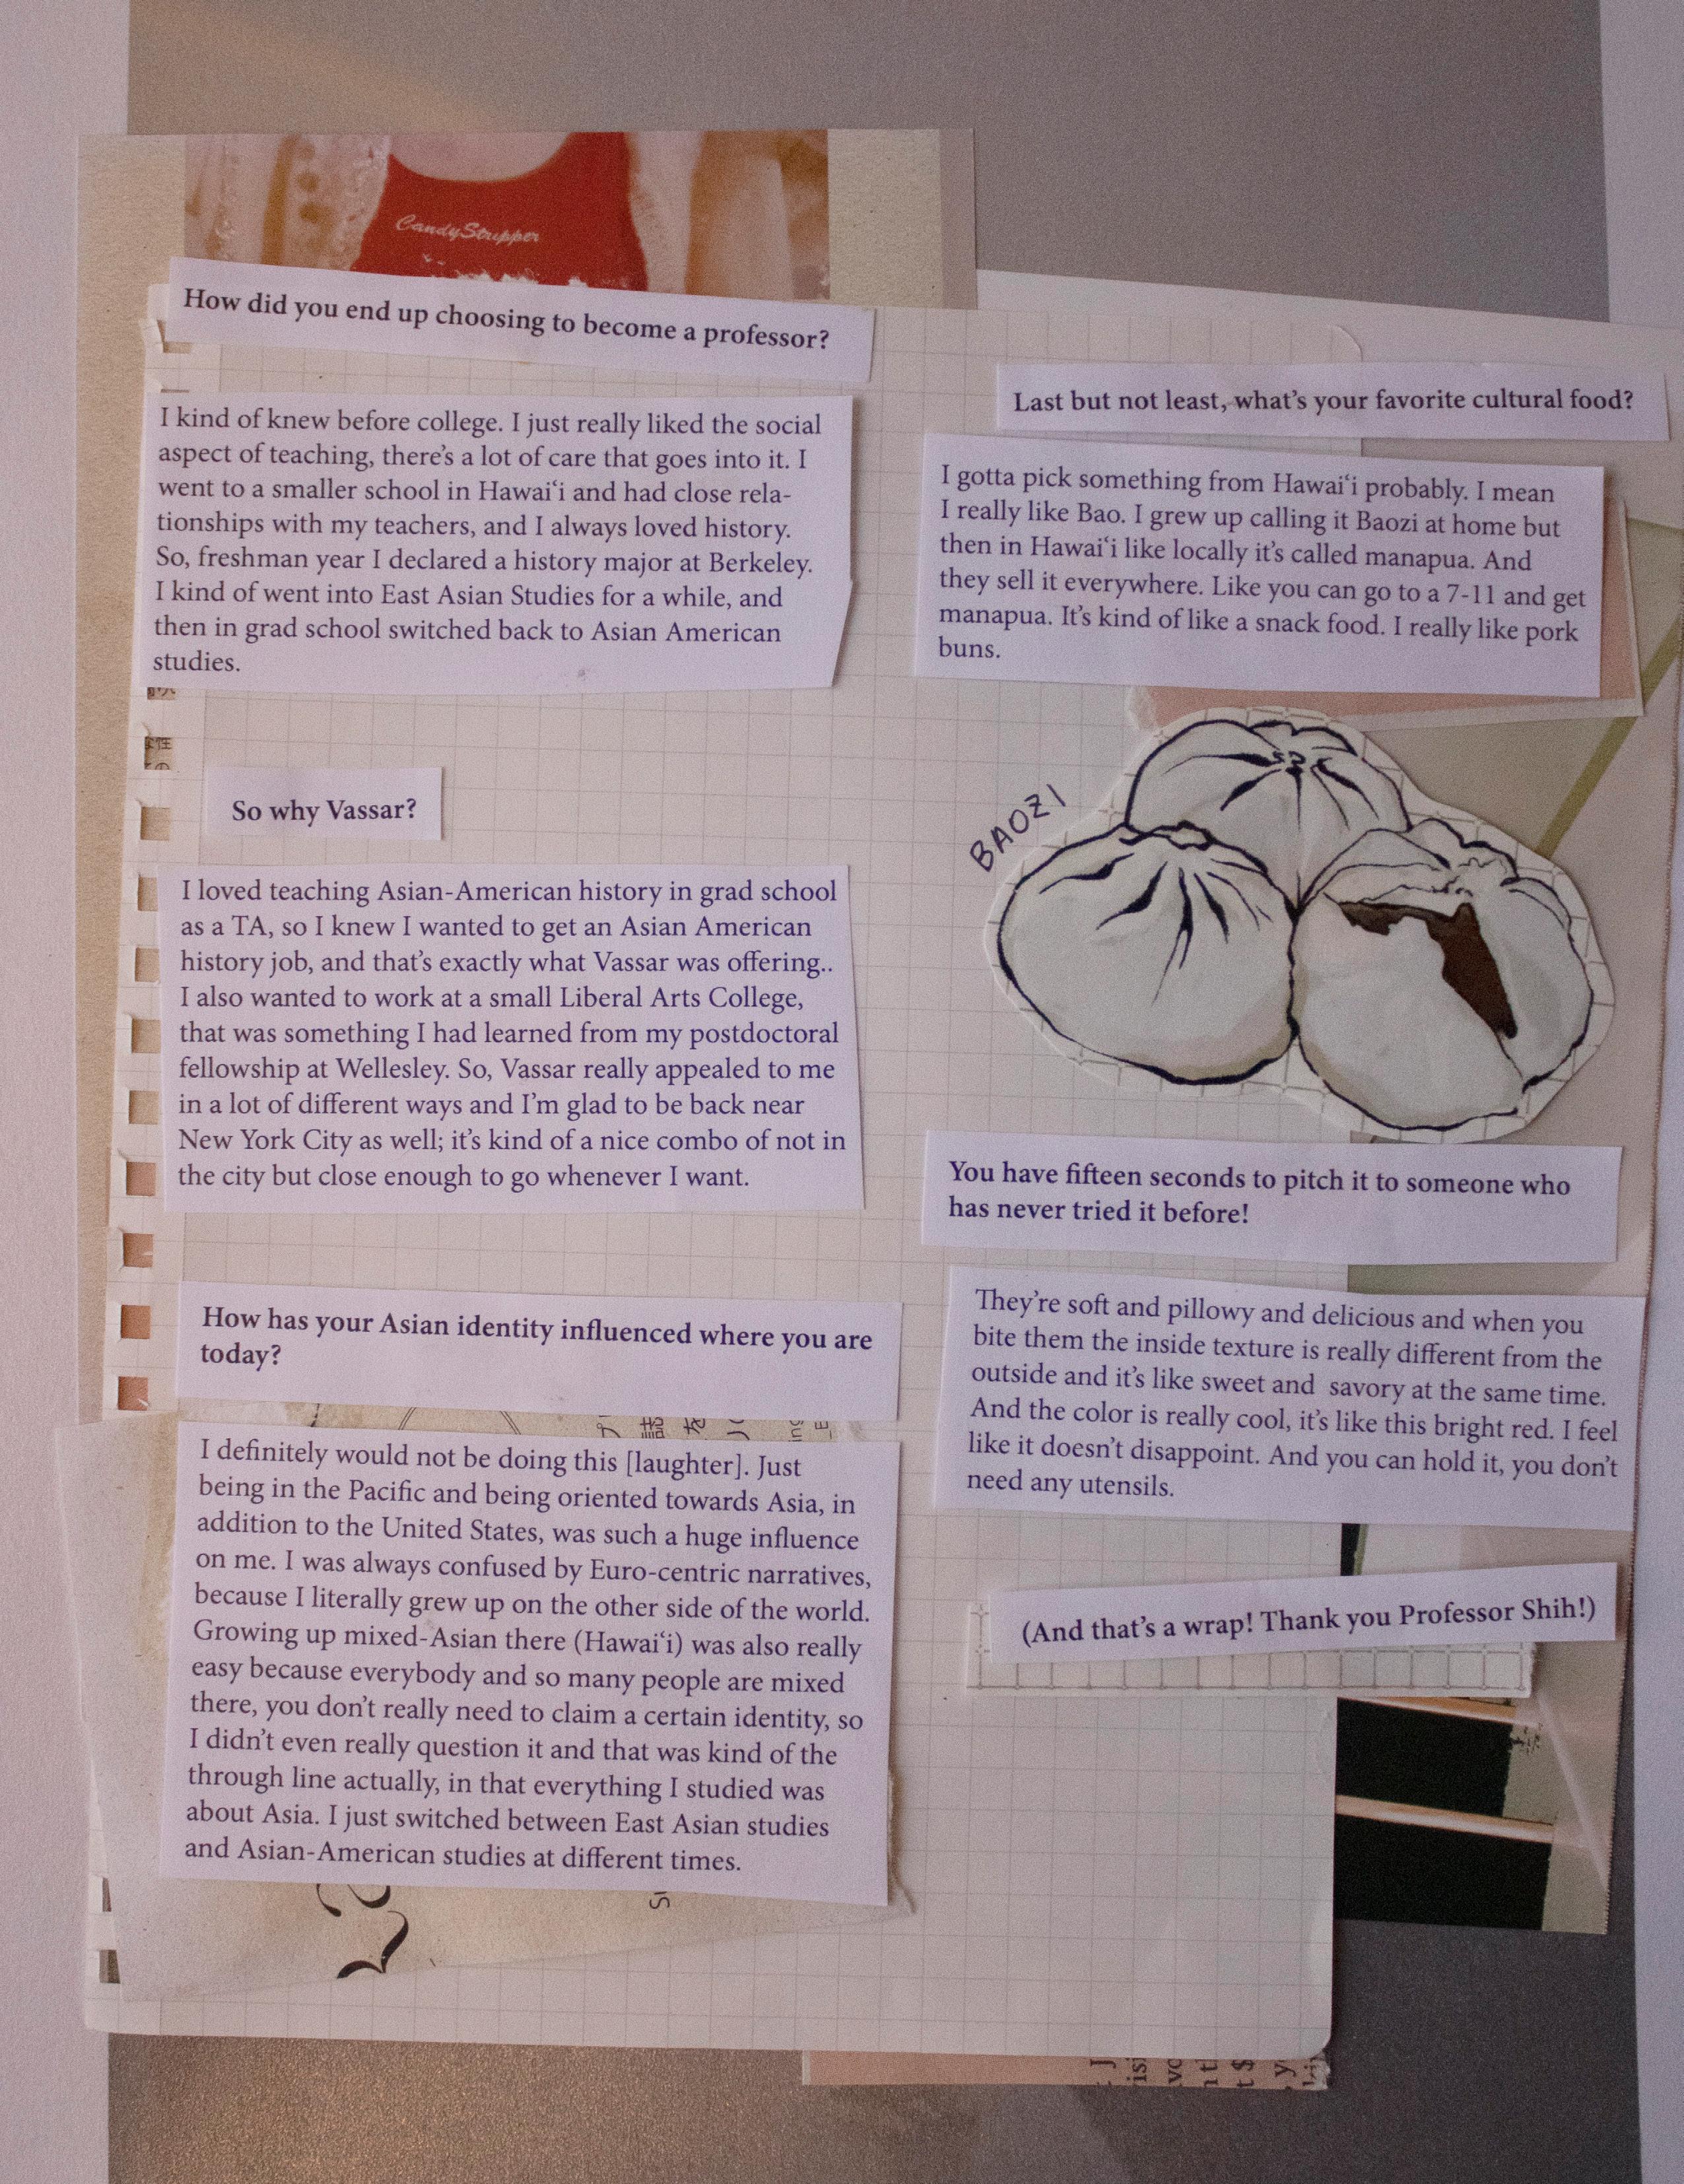 CandyStripper
How did you end up choosing to become a professor?
I kind of knew before college. I just really liked the social
aspect of teaching, there's a lot of care that goes into it. I
went to a smaller school in Hawaiʻi and had close rela-
tionships with my teachers, and I always loved history.
So, freshman year I declared a history major at Berkeley.
I kind of went into East Asian Studies for a while, and
then in grad school switched back to Asian American
studies.
So why Vassar?
I loved teaching Asian-American history in grad school
as a TA, so I knew I wanted to get an Asian American
history job, and that's exactly what Vassar was offering..
I also wanted to work at a small Liberal Arts College,
that was something I had learned from my postdoctoral
fellowship at Wellesley. So, Vassar really appealed to me
in a lot of different ways and I'm glad to be back near
New York City as well; it's kind of a nice combo of not in
the city but close enough to go whenever I want.
How has your Asian identity influenced where you are
today?
I definitely would not be doing this [laughter]. Just
being in the Pacific and being oriented towards Asia, in
addition to the United States, was such a huge influence
on me. I was always confused by Euro-centric narratives,
because I literally grew up on the other side of the world.
Growing up mixed-Asian there (Hawaiʻi) was also really
easy because everybody and so many people are mixed
there, you don't really need to claim a certain identity, so
I didn't even really question it and that was kind of the
through line actually, in that everything I studied was
about Asia. I just switched between East Asian studies
and Asian-American studies at different times.
Last but not least, what's your favorite cultural food?
I gotta pick something from Hawaiʻi probably. I mean
I really like Bao. I grew up calling it Baozi at home but
then in Hawaiʻi like locally it's called manapua. And
they sell it everywhere. Like you can go to a 7-11 and get
manapua. It's kind of like a snack food. I really like pork
buns.
BAOZI
You have fifteen seconds to pitch it to someone who
has never tried it before!
They're soft and pillowy and delicious and when you
bite them the inside texture is really different from the
outside and it's like sweet and savory at the same time.
And the color is really cool, it's like this bright red. I feel
like it doesn't disappoint. And you can hold it, you don't
need any utensils.
(And that's a wrap! Thank you Professor Shih!)